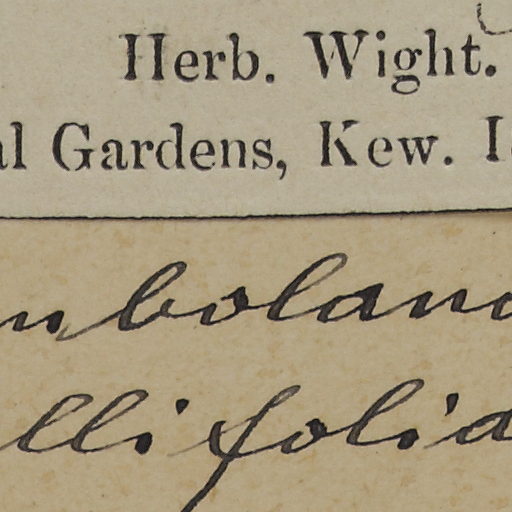 Herb. Wight.
al Gardens, Kew. 1
mboland
llifolia